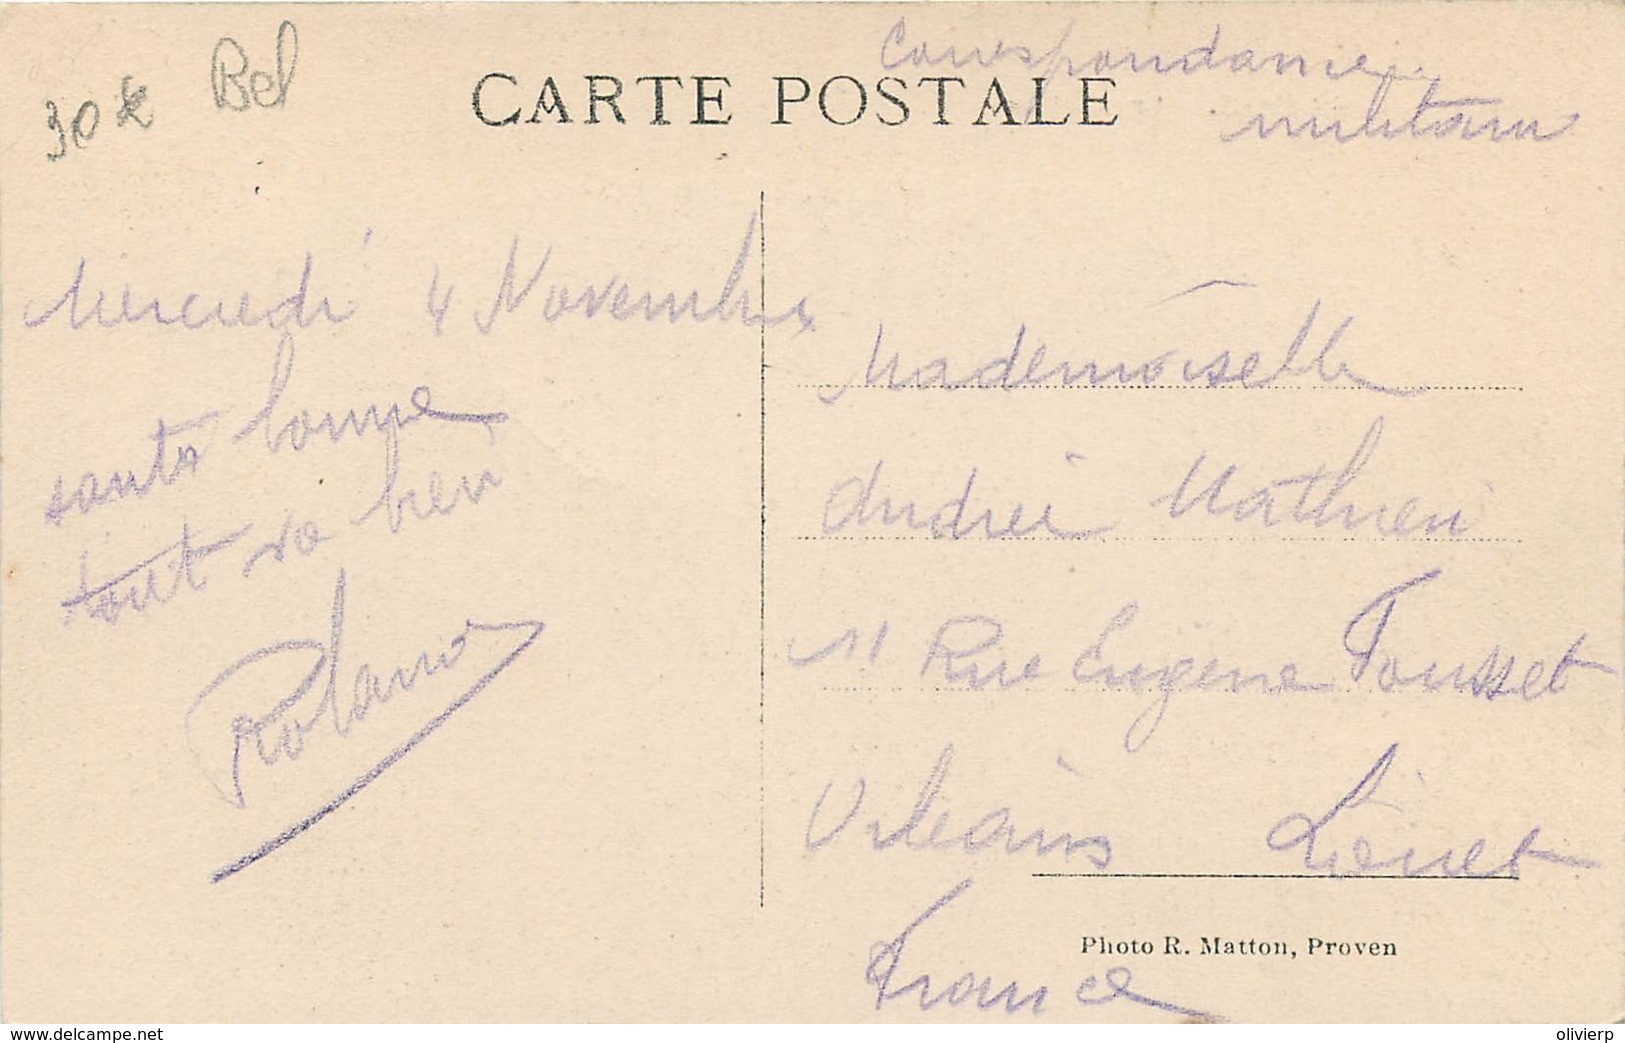 30 € Bel
Correspondance
militaire
CARTE POSTALE
Mercredi 4 Novembre
santé bonne
tout va bien
Roland
Mademoiselle
Andrée Mathieu
11 Rue Eugene Fousset
Orléans Loiret
France
Photo R. Matton, Proven
delcampe.com
olivierp